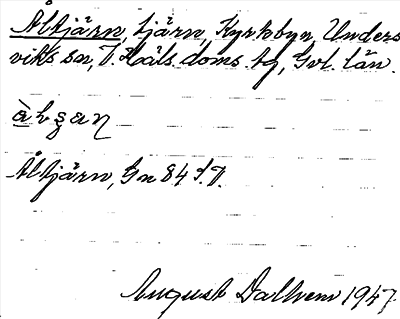 Åltjärn, tjärn, Kyrkbyn, Unders
viks sn, V. Häls. doms. tg, Gvl. län.
Åltjärn, Gn 84 SV.
August Dalhem 1947